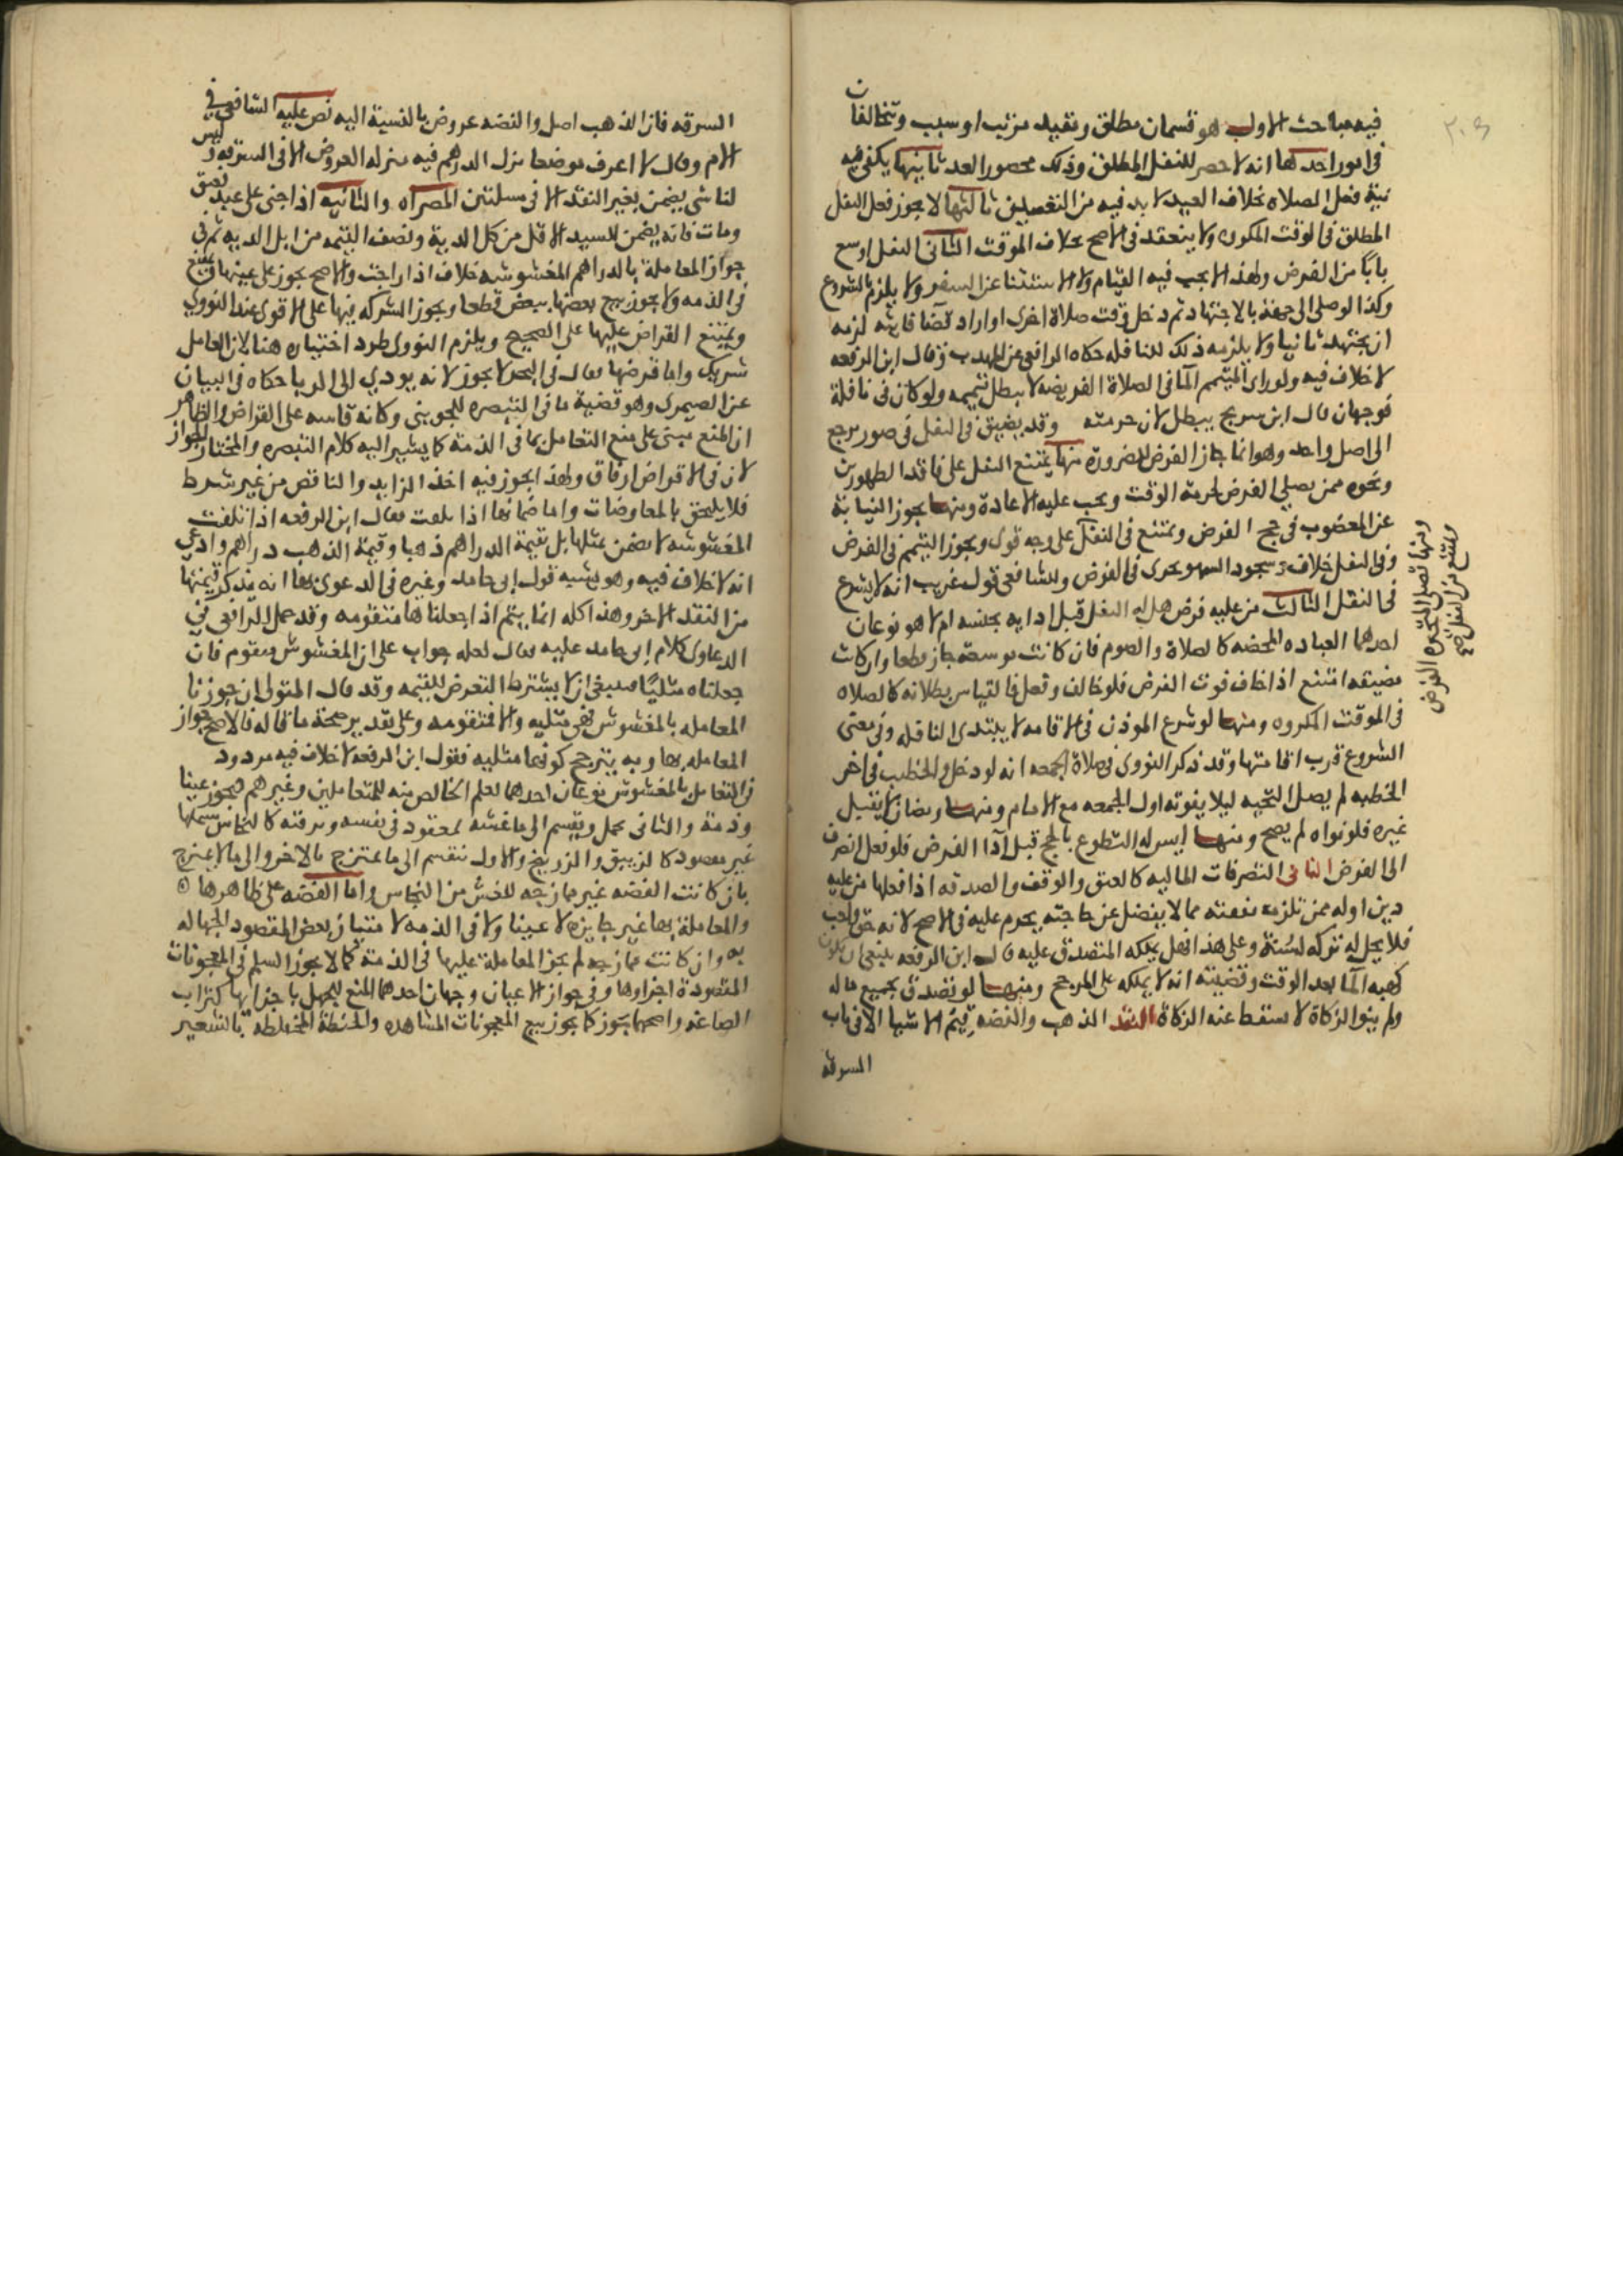 فيه مباحث الاول هو قسمان مطلق ومقيد مرتب او سبب ويتخالفان
في امور احدها انه لا حصر للنفل المطلق وذلك محصور العدد ثانيها يكفي فيه
نية فعل الصلاه بخلاف المقيد لا بد فيه من التفصيل ثالثها لا يجوز فعل النفل
المطلق في الوقت المكروه ولا ينعقد في الاصح بخلاف الموقت الثاني النفل اوسع
بابا من الفرض ولهذا لا يجب فيه القيام ولا الاستقبال في السفر ولا يلزم بالشروع
وكذا لو صلى الى جهة بالاجتهاد ثم دخل وقت صلاة اخرى او اراد قضا فايتة لزمه
ان يجتهد ثانيا ولا يلزمه ذلك للنافله حكاه الرافعي عن المهذب وقال ابن الرفعه
لا خلاف فيه ولو راى المتيمم الما في الصلاة الفريضه لا يبطل تيممه ولو كان في نافلة
فوجهان قال ابن سريج يبطل لان حرمته وقد يضيق في النفل في صور يرجع
الى اصل واحد وهو انما جاز الفرض للضرورة منها يمتنع النفل على فاقد الطهورين
ونحوه ممن يصلي الفرض لحرمة الوقت ويجب عليه الاعادة ومنها يجوز النيابة
عن المعضوب في حج الفرض ويمتنع في النفل على وجه قوي ويجوز التيمم في الفرض
وفي النفل خلاف وسجود السهو يجري في الفرض وللشافعي قول غريب انه لا يشرع
في النفل الثالث من عليه فرض هل له النفل قبل ادايه بجنسه ام لا هو نوعان
احدهما العباده المحضه كالصلاة والصوم فان كانت موسعة جاز قطعا وان كانت
مضيقه امتنع اذا خاف فوت الفرض فلو خالف وفعل فالقياس بطلانه كالصلاه
في الوقت المكروه ومنها لو شرع الموذن في الاقامه لا يبتدي النافله وفي معنى
الشروع قرب اقامتها وقد ذكر النووي في صلاة الجمعه انه لو دخل والخطيب في اخر
الخطبه لم يصل التحيه ليلا يفوته اول الجمعه مع الامام ومنها رمضان لا يقبل
غيره فلو نواه لم يصح ومنها ليس له التطوع بالحج قبل ادا الفرض فلو فعل انصرف
الى الفرض الثاني التصرفات الماليه كالعتق والوقف والصدقه اذا فعلها من عليه
دين او له ممن تلزمه نفقته مما لا يفضل عن حاجته يحرم عليه في الاصح لانه حق واجب
فلا يحل له تركه لسنة وعلى هذا فهل يملكه المتصدق عليه قال ابن الرفعه ينبغي ان يكون
كهبه الما بعد الوقت وقضيته انه لا يملكه على المرجح ومنها لو تصدق بجميع ماله
ولم ينو الزكاة لا تسقط عنه الزكاة النقد الذهب والفضه قيم الاشيا الا في باب
السرقة
ومنها تصلى المتحيره الفرض
ويمتنع من النفل صح
السرقه فان الذهب اصل والفضه عروض بالنسبة اليه نص عليه الشافعي في
الام وقال لا اعرف موضعا نزل الدراهم فيه منزله العروض الا في السرقه وليس
لنا شي يضمن بغير النقد الا في مسلتين المصراه والثانيه اذا جنى على عبد فعتق
ومات فانه يضمن للسيد الاقل من كل الدية ونصف القيمه من ابل الديه ثم في
جواز المعاملة بالدراهم المغشوشه خلاف اذا راجت والاصح يجوز على عينها ويمتنع
في الذمه ولا يجوز بيع بعضها ببعض قطعا ويجوز الشركه فيها على الاقوى عند النووي
ويمتنع القراض عليها على الصحيح ويلزم النووي طرد اختياره هنا لان العامل
شريك واما قرضها فقال في البحر لا يجوز لانه يودي الى الربا حكاه في البيان
عن الصيمري وهو قضية ما في التبصره للجويني وكانه قاسه على القراض والظاهر
ان المنع مبني على منع التعامل بها في الذمة كما يشير اليه كلام التبصره والمختار الجواز
لان في الاقراض ارفاق ولهذا يجوز فيه اخذ الزايد والناقص من غير شرط
فلا يلحق بالمعاوضات واما ضمانها اذا تلفت فقال ابن الرفعه اذا تلفت
المغشوشه لا تضمن بمثلها بل بقيمة الدراهم ذهبا وقيمة الذهب دراهم وادعى
انه لا خلاف فيه وهو يشبه قول ابي حامد وغيره في الدعوى بها انه يذكر قيمتها
من النقد الاخر وهذا كله انما يتم اذا جعلناها متقومه وقد حمل الرافعي في
الدعاوى كلام ابي حامد عليه فقال لعله جواب على ان المغشوش متقوم فان
جعلناه مثليا فينبغي ان لا يشترط التعرض للقيمه وقد قال المتولي ان جوزنا
المعامله بالمغشوش فهي مثليه والا فمتقومه وعلى تقدير صحة ما قاله فالاصح جواز
المعامله بها وبه يترجح كونها مثليه فقول ابن الرفعه لا خلاف فيه مردود
ثم التعامل بالمغشوش نوعان احدهما لعلم الخالص منه للمتعاملين وغيرهم فيجوز عينا
وذمة والثاني يجهل ويقسم الى ما غشه مقصود في نفسه وسرقته كالنحاس
غير مقصود كالزيبق والزرنيخ والاول ينقسم الى ما يمتزج بالاخر والى ما لا يمتزج
بان كانت الفضه غير ممازجه للغش من النحاس واما الفضه على ظاهرها
والمعاملة بها غير جايزه لا عينا ولا في الذمه لا متياز بعض المقصود الجهاله
به وان كانت ممازجه لم يجز المعاملة عليها في الذمة كما لا يجوز السلم في المعجونات
المقصودة اجزاوها وفي جواز الاعيان وجهان احدهما المنع للجهل باجزايها كتراب
الصاغه واصحهما يجوز كما يجوز بيع المعجونات المشاهده والحنطة المختلطة بالشعير